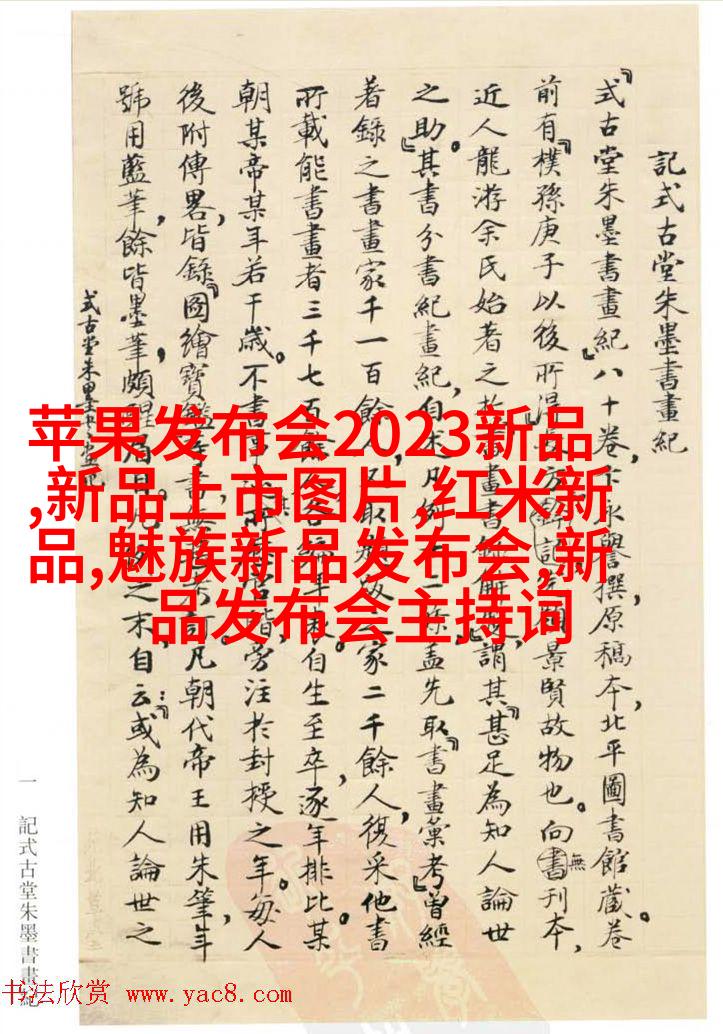 記式古堂朱墨書畫紀
『式古堂朱墨書畫紀』八十卷，卞永譽撰，原稿本，北平圖書館藏。卷
前有『樸孫庚子以後所得 方 記 景賢故物也。向無刊本，
近人龍游余氏始著之於書畫書錄解題，謂其『甚足為知人論世
之助。』其書分書紀畫紀，自 凡例 二條，蓋先取『書畫彙考』曾經
著錄之書畫家千一百餘 又取 家二千餘人，復采他書
所載能書畫者三千七百餘 各 年表，自生至卒，逐年排比，某
朝某帝某年若干歲。不書 皆旁注於封授之年。每人
後附傳畧，皆錄『圖繪寶鑑 書 凡朝代帝王用朱筆，年
號用藍筆，餘皆墨筆，頗醒 目。凡 之末，自云：『或為知人論世之
式古堂朱墨書畫紀
苹果发布会2023新品
,新品上市图片,红米新
品,魅族新品发布会,新
品发布会主持词
一
記式古堂朱墨書畫紀
书法欣赏 www.yac8.com